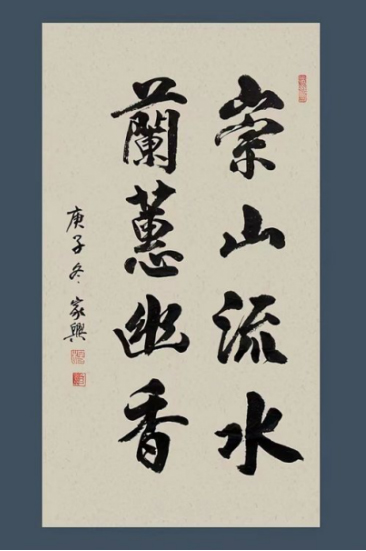 崇山流水
蘭蕙幽香
庚子冬家興